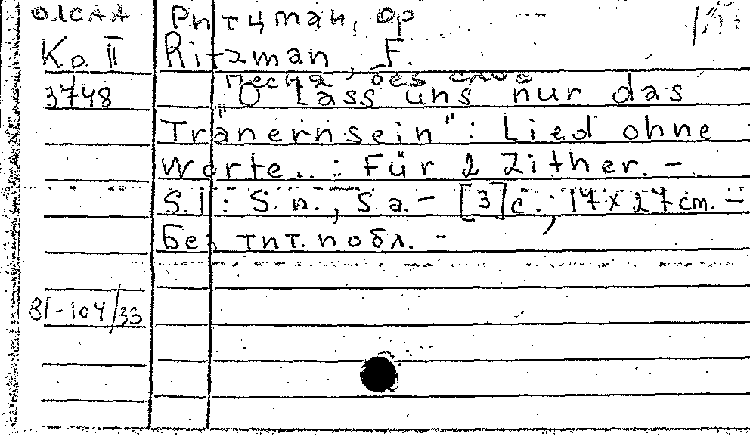 ОЛСАА
Ко II
3748
Ритцман, Фр
Ritzman, F.
песня, без слов
"O lass uns nur das
Tränernsein": Lied ohne
Worte..: Für 2 Zither. -
S.l: S.n., S a. - [3] с.; 17 x 27 cm. -
Без тит. и обл. -
81-104/33